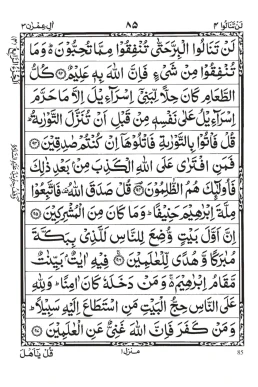 لن تنالوا ۴ ۸۵ ال عمرٰن ۳
لَنْ تَنَالُوا الْبِرَّ حَتّٰى تُنْفِقُوْا مِمَّا تُحِبُّوْنَ ؕ وَمَا
تُنْفِقُوْا مِنْ شَیْءٍ فَاِنَّ اللّٰهَ بِهٖ عَلِیْمٌ ﴿۹۲﴾ كُلُّ
الطَّعَامِ كَانَ حِلًّا لِّبَنِیْۤ اِسْرَآءِیْلَ اِلَّا مَا حَرَّمَ
اِسْرَآءِیْلُ عَلٰى نَفْسِهٖ مِنْ قَبْلِ اَنْ تُنَزَّلَ التَّوْرٰىةُ ؕ
قُلْ فَاْتُوْا بِالتَّوْرٰىةِ فَاتْلُوْهَاۤ اِنْ كُنْتُمْ صٰدِقِیْنَ ﴿۹۳﴾
فَمَنِ افْتَرٰى عَلَى اللّٰهِ الْكَذِبَ مِنْۢ بَعْدِ ذٰلِكَ
فَاُولٰٓئِكَ هُمُ الظّٰلِمُوْنَ ﴿۹۴﴾ قُلْ صَدَقَ اللّٰهُ ۫ فَاتَّبِعُوْا
مِلَّةَ اِبْرٰهِیْمَ حَنِیْفًا ؕ وَمَا كَانَ مِنَ الْمُشْرِكِیْنَ ﴿۹۵﴾
اِنَّ اَوَّلَ بَیْتٍ وُّضِعَ لِلنَّاسِ لَلَّذِیْ بِبَكَّةَ
مُبٰرَكًا وَّهُدًى لِّلْعٰلَمِیْنَ ﴿۹۶﴾ فِیْهِ اٰیٰتٌۢ بَیِّنٰتٌ
مَّقَامُ اِبْرٰهِیْمَ ۬ وَمَنْ دَخَلَهٗ كَانَ اٰمِنًا ؕ وَلِلّٰهِ
عَلَى النَّاسِ حِجُّ الْبَیْتِ مَنِ اسْتَطَاعَ اِلَیْهِ سَبِیْلًا ؕ
وَمَنْ كَفَرَ فَاِنَّ اللّٰهَ غَنِیٌّ عَنِ الْعٰلَمِیْنَ ﴿۹۷﴾
قُلْ یٰۤاَهْلَ منزل ۱ 85